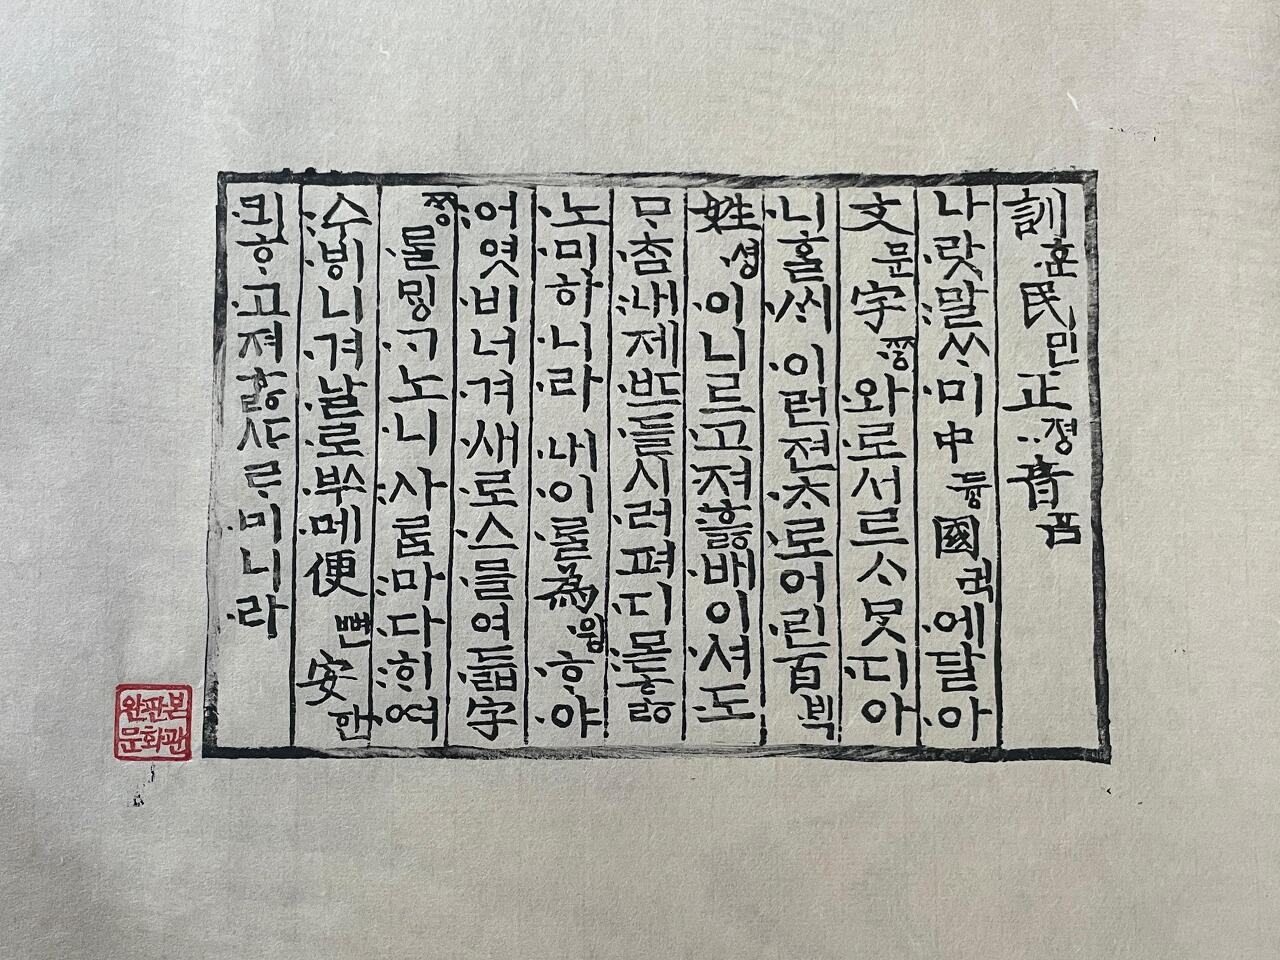 訓훈民민正졍音ᅙᅳᆷ
나랏말ᄊᆞ미中듕國귁에달아
文문字ᄍᆞᆼ와로서르ᄉᆞᄆᆞᆺ디아
니ᄒᆞᆯᄊᆡ 이런젼ᄎᆞ로어린百ᄇᆡᆨ
姓셩이니르고져호ᇙ배이셔도
ᄆᆞᄎᆞᆷ내제ᄠᅳ들시러펴디몯ᄒᆞᇙ
노미하니라 내이ᄅᆞᆯ為윙ᄒᆞ야
어엿비너겨새로스믈여듧字
ᄍᆞᆼᄅᆞᆯᄆᆡᇰᄀᆞ노니사ᄅᆞᆷ마다ᄒᆡᅇᅧ
수ᄫᅵ니겨날로ᄡᅮ메便뼌安ᅙᅡᆫ
킈ᄒᆞ고져ᄒᆞᇙᄯᆞᄅᆞ미니라
완판본
문화관